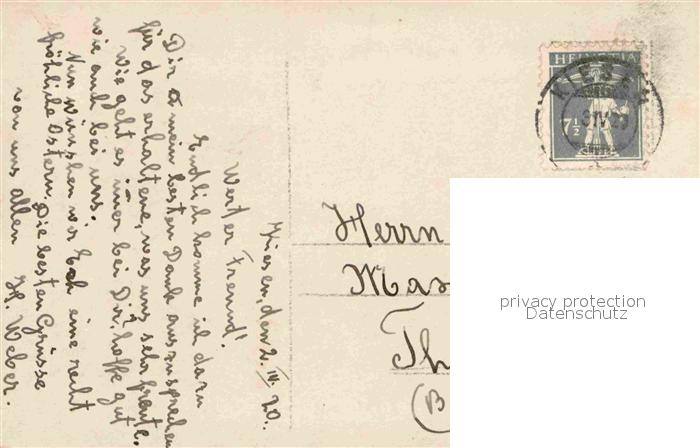 Kiesen, den 2. IV. 20.
Werter Freund!
Endlich komme ich dazu
Dir meinen besten Dank auszusprechen
für das erhaltene, was uns sehr freute.
Wie geht es immer bei Dir, hoffe gut
wie auch bei uns.
Nun wünschen wir Euch eine recht
fröhliche Ostern. Die besten Grüsse
von uns allen H. Weber.
HELVETIA
KIESEN
7½
Herrn
Mas
Th
(B
privacy protection
Datenschutz